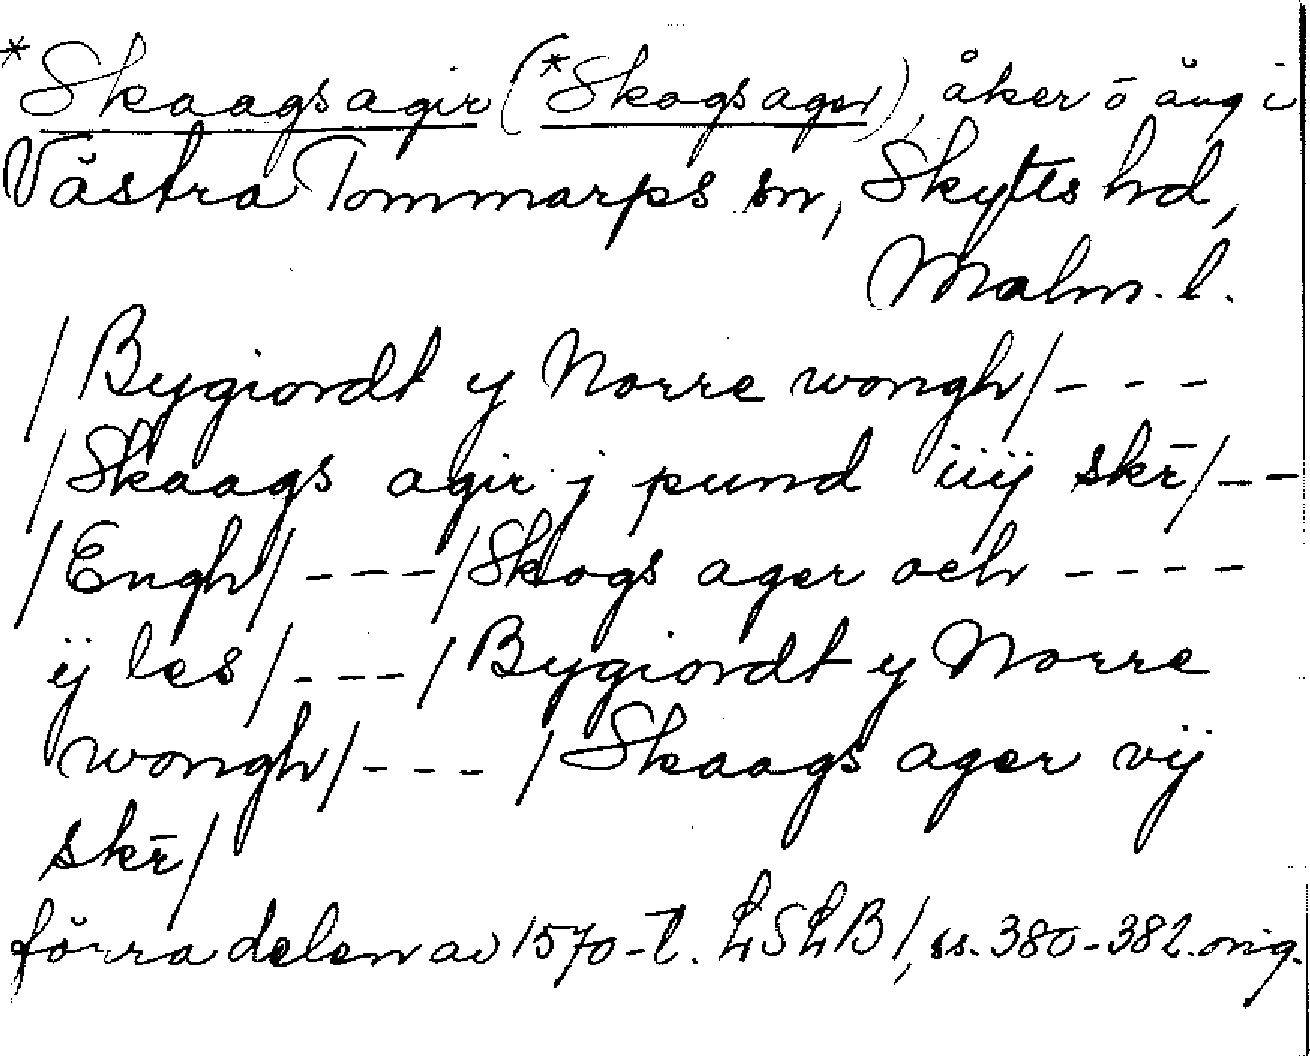 *Skaagsagir (*Skogsager), åker ō äng i
Västra Tommarps sn, Skytts hd,
Malm. l.
/Bygiordt y Norre wongh/- - -
/Skaags agir j pund iiij skr̄/- -
/Engh/- - -/Skogs ager och - - - -
ij les/- - -/Bygiordt y Norre
wongh/- - - /Skaags ager vij
skr̄/
förra delen av 1570-t. LSLB I, ss. 380-382. orig.